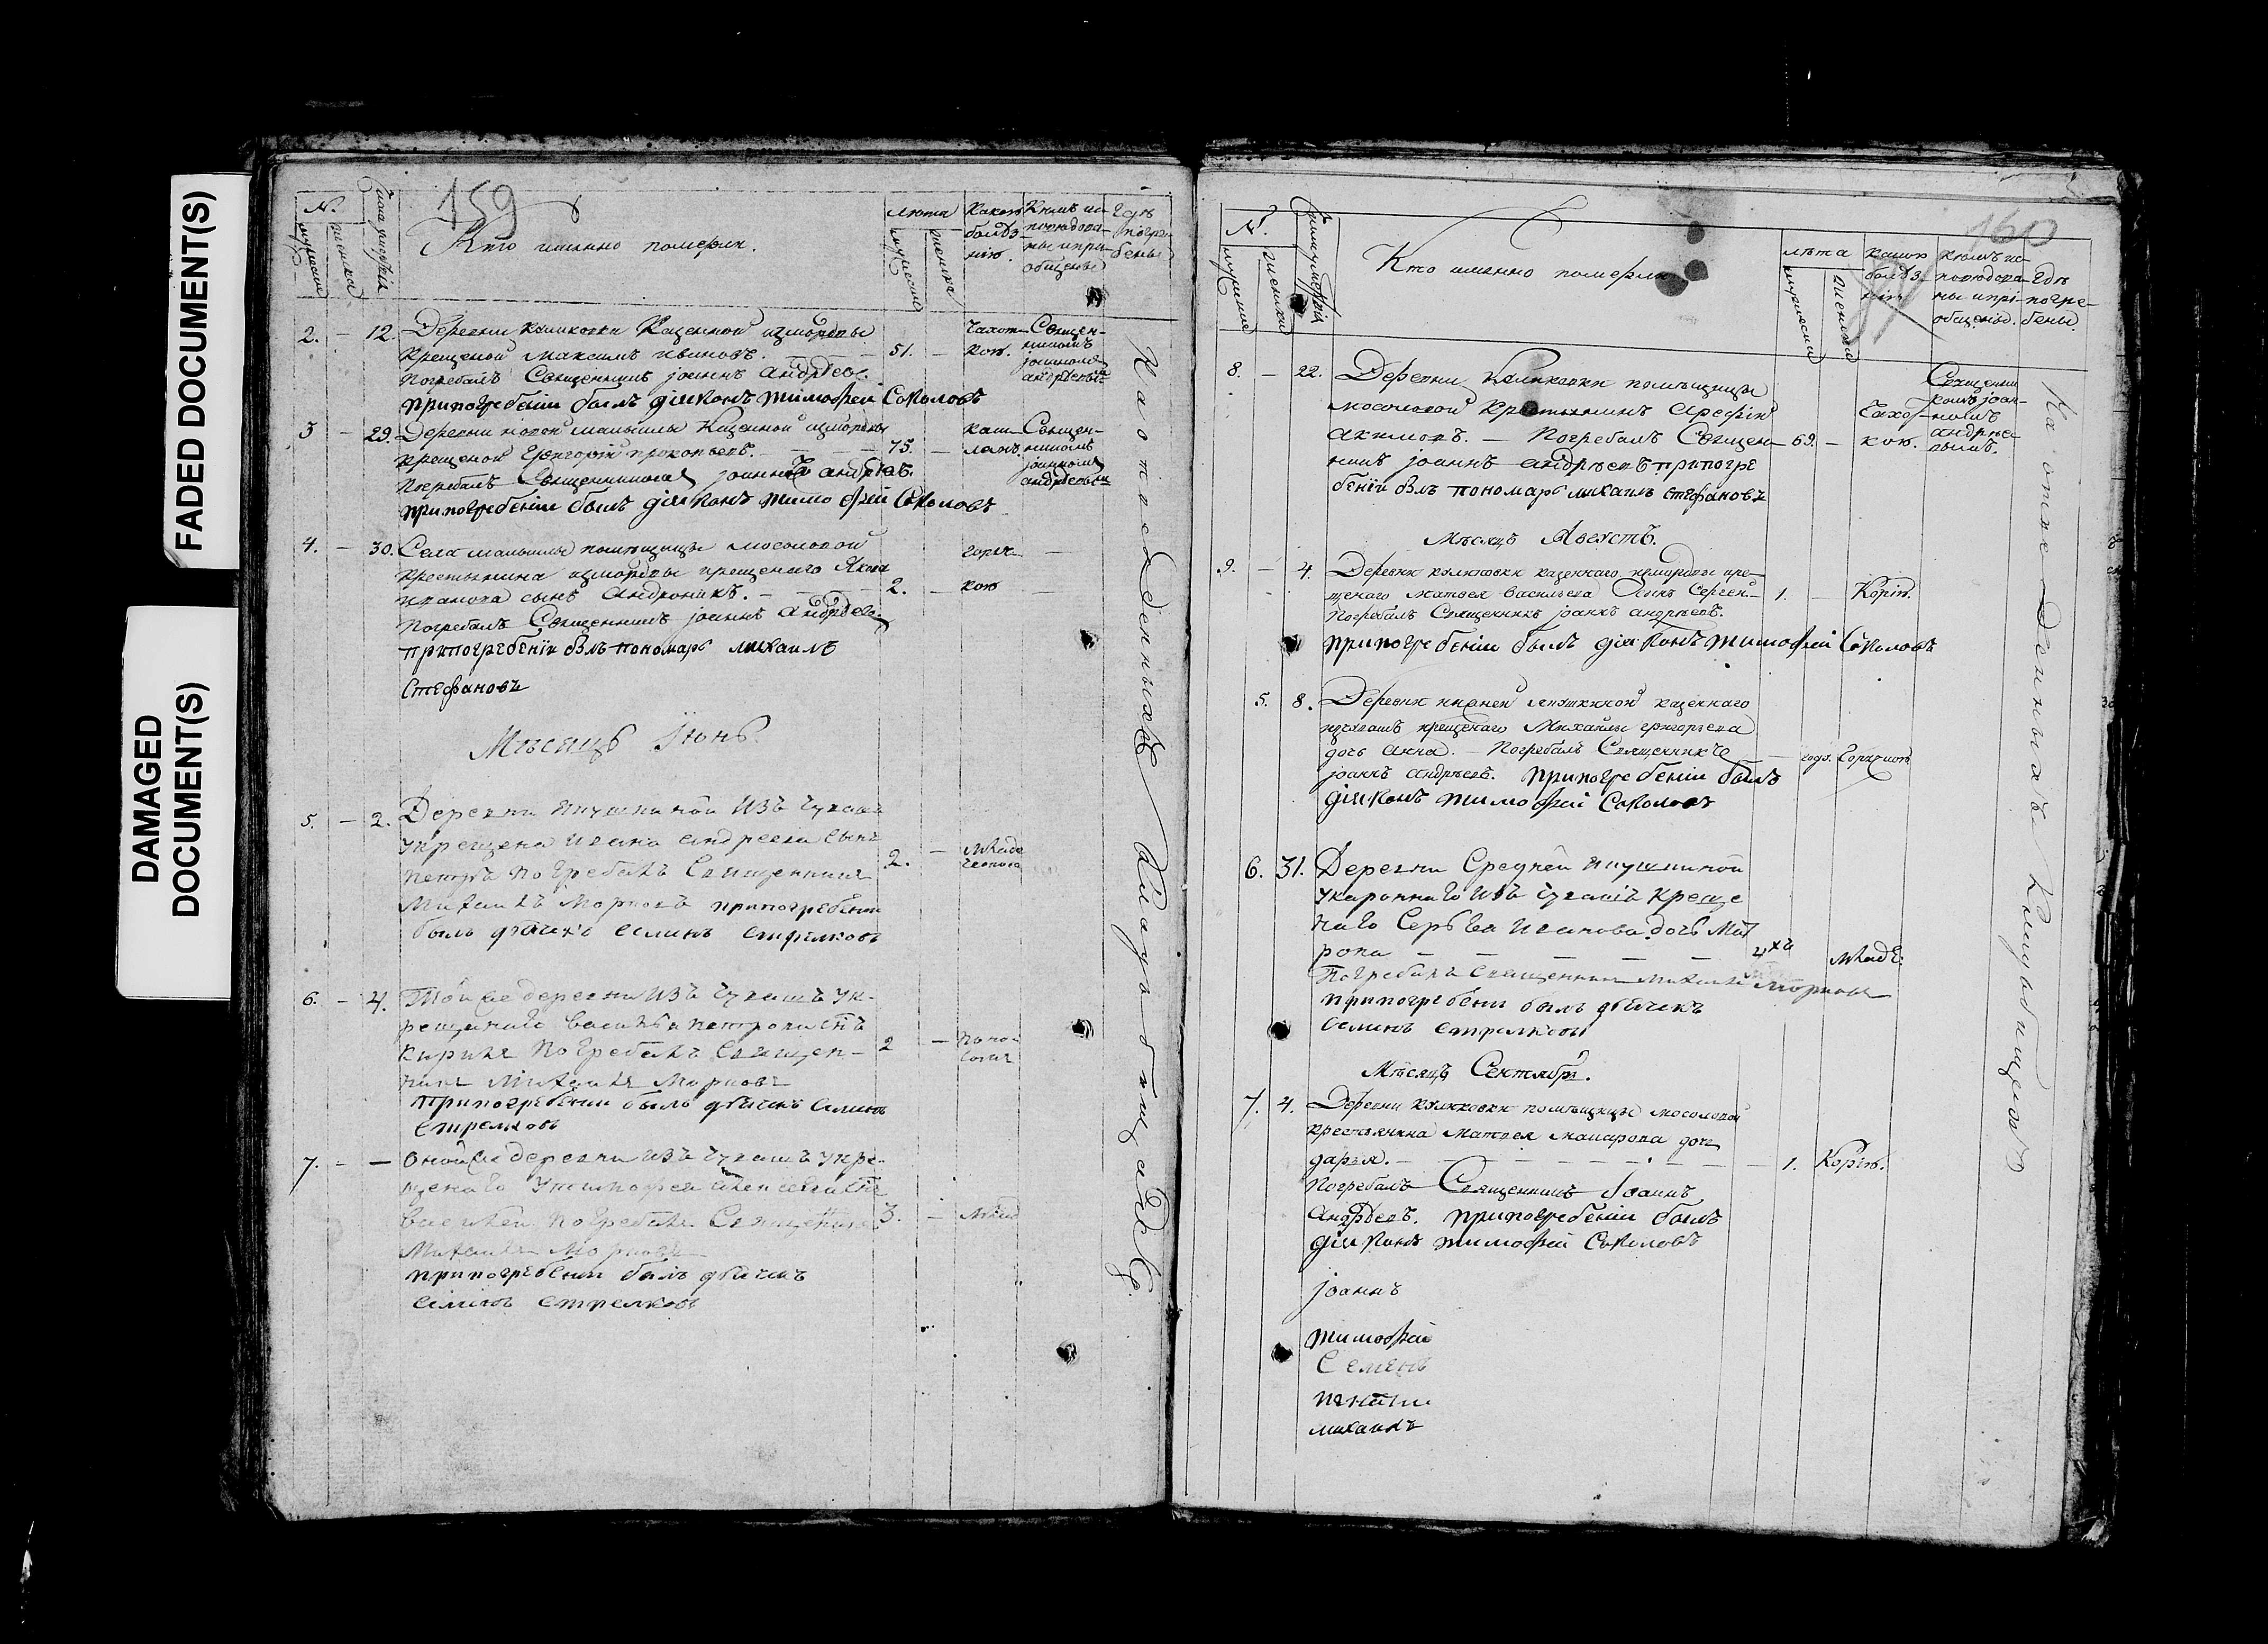 FADED DOCUMENT(S)
DAMAGED
DOCUMENT(S)
159
№.
мужеска
женска
Кто именно померли.
лѣта
мужеска
женска
Какою
болѣз-
нію.
Кѣмъ ис-
повѣдова-
ны и прі-
общены
Гдѣ
погре-
бены
2. – 12. Деревни Куликовки Казенной измордвы
крещеной Максимъ Ивановъ. 51.
Погребалъ Священникъ Іоаннъ Андрѣевъ.
при погребеніи былъ діаконъ Тимофей Соколовъ
Чахот-
кою.
Священ-
никомъ
Іоанномъ
Андрѣевы
3 – 29. Деревни Малышлы Казенной измордвы
крещеной Григорій Прокопьевъ. 75.
Погребалъ Священникъ Іоаннъ Андрѣевъ.
при погребеніи былъ діаконъ Тимофей Соколовъ
каш-
лемъ
Священ-
никомъ
Іоанномъ
Андрѣевы
4. – 30. Села помѣщицы Мосоловой
крестьянина измордвы крещенаго Якова
Иванова сынъ Андроникъ. 2.
Погребалъ Священникъ Іоаннъ Андрѣевъ.
при погребеніи былъ пономарь Михаилъ
Стефановъ
горяч-
кою
Мѣсяцъ Іюнь.
5. – 2. Деревни Ягушкиной изъ чувашъ
укрещена Ивана Андреева сынъ
Петръ погребалъ Священникъ 2.
Михаилъ при погребеніи
былъ дьячекъ Семинъ Стрелковъ
6. – 4. Той же деревни изъ чувашъ ук-
рещенаго Василья Петрова снъ
Кирила погребалъ Священ- 2
никъ Михаила
при погребеніи былъ дьячекъ Семинъ
Стрелковъ
поно-
сомъ
7. – – Оной же деревни изъ чувашъ укре-
щенаго Тимофея снъ
Василей погребалъ Священникъ 3.
Михаила
при погребеніи былъ дьячекъ
Семинъ Стрелковъ
На отведенныхъ кладбищахъ
160
№.
мужеска
женска
Кто именно померли
лѣта
мужеска
женска
Какою
болѣз-
нію
Кѣмъ ис-
повѣдова-
ны и прі-
общены.
Гдѣ
погре-
бены.
8. – 22. Деревни Куликовки помѣщицы
Мосоловой крестьянинъ Арефій
Акимовъ. – Погребалъ Священ- 69. –
никъ Іоаннъ Андрѣевъ при погре
беніи былъ пономарь Михаилъ Стефановъ
Чахот-
кою.
Священни
комъ Іоан-
номъ
Андрѣе-
вымъ.
Мѣсяцъ Августъ.
9. – 4. Деревни Куликовки казеннаго измордвы кре-
щенаго Матвея Васильева сынъ Сергей – 1. – Коріт.
Погребалъ Священникъ Іоаннъ Андрѣевъ.
при погребеніи былъ діаконъ Тимофей Соколовъ
5. 8. Деревни нижней Ягушкиной казеннаго
изчувашъ крещенаго Михайлы Григорьева
дочь Анна. – Погребалъ Священникъ
Іоаннъ Андрѣевъ. при погребеніи былъ
діаконъ Тимофей Соколовъ
6. 31. Деревни Средней Ягушкиной
изъ чувашъ креще
наго Сергѣя Иванова дочь Мат
рона – – – – –
Погребалъ Священникъ Михаилъ
при погребени былъ дьячекъ
Семинъ Стрелковъ
Мѣсяцъ Сентябрь.
7. 4. Деревни Куликовки помѣщицы Мосоловой
крестьянина Матвея Макарова дочь
Дарья. – – – – – – 1. Коріт.
Погребалъ Священникъ Іоаннъ
Андрѣевъ. при погребеніи былъ
діаконъ Тимофей Соколовъ
Іоаннъ
Тимофей
Семенъ
Михаилъ
На отведенныхъ кладбищахъ